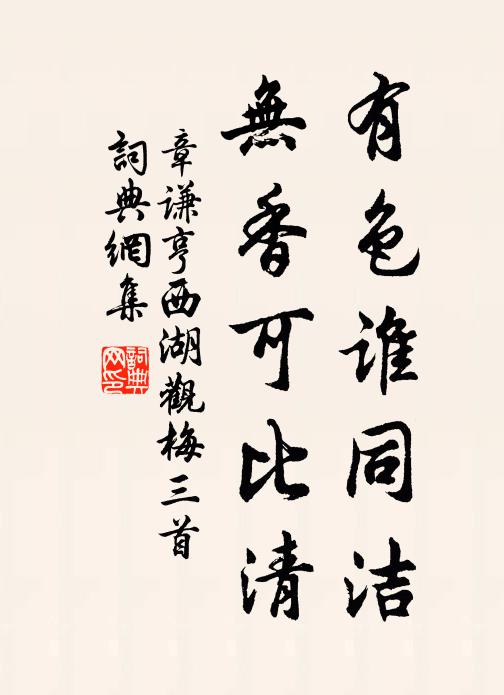 有色谁同洁
無香可比清
章谦亨西湖觀梅三首
詞典網集
詞典網印